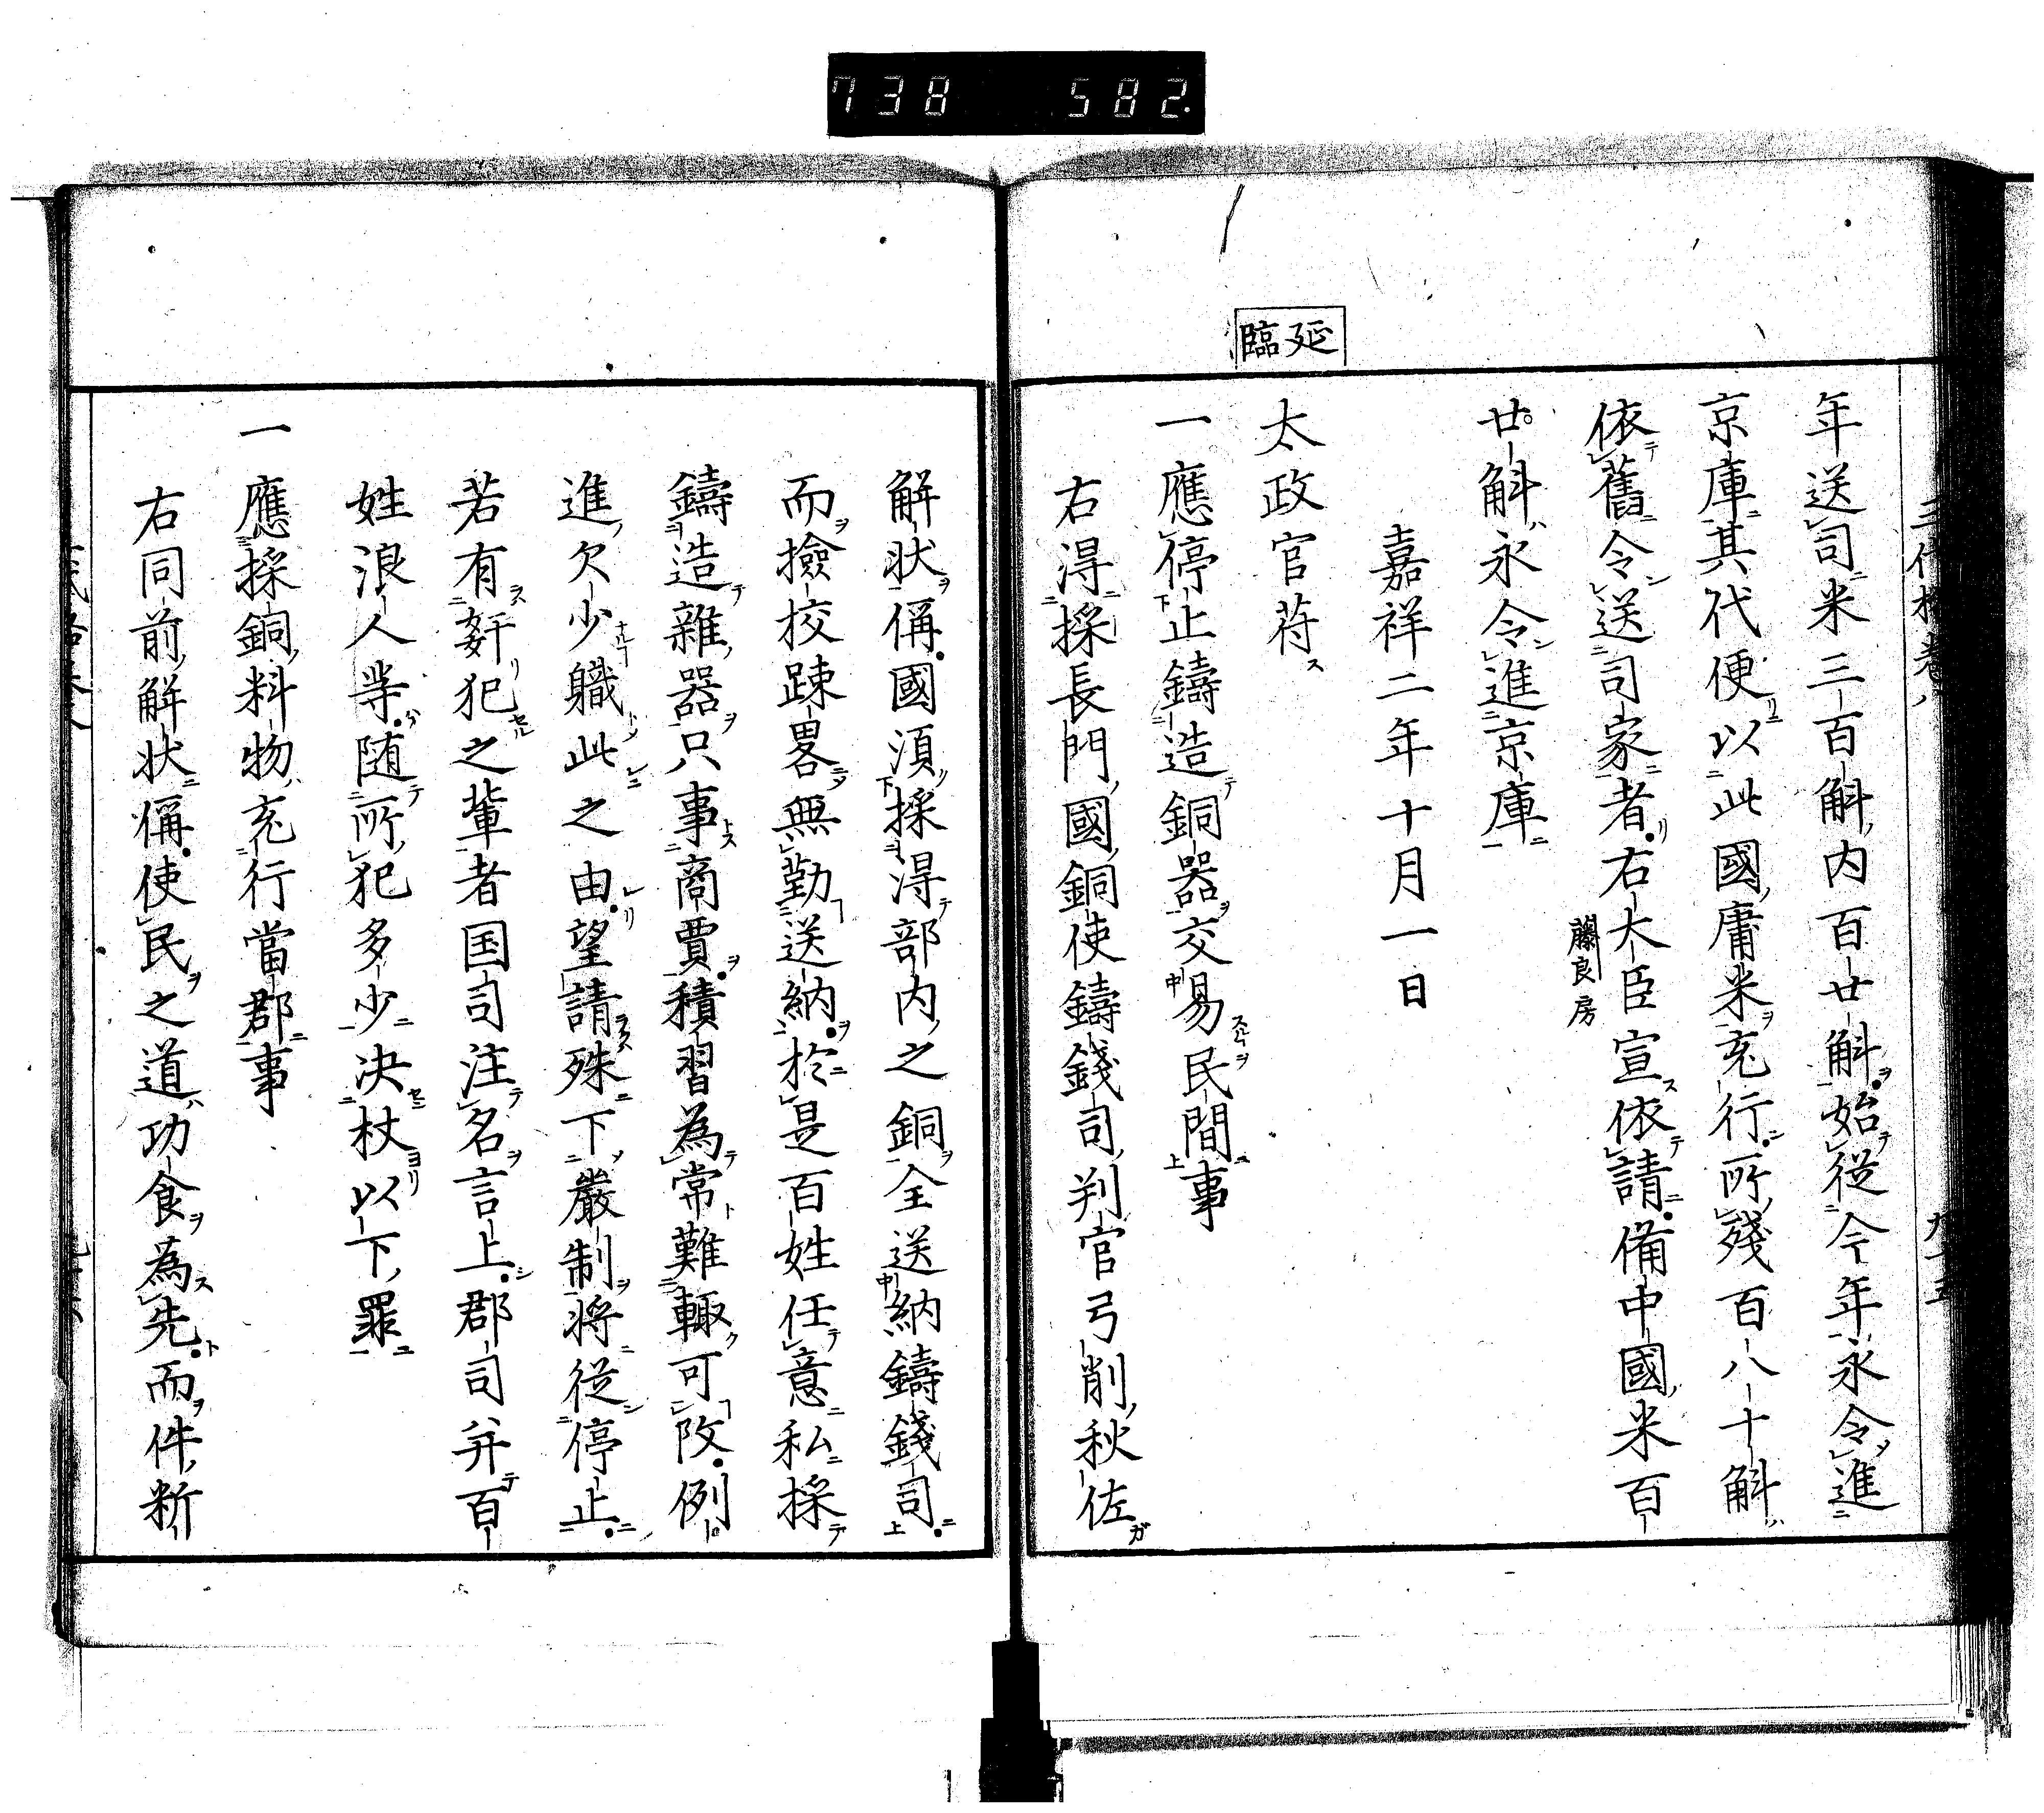 738 582
延臨
年送司米三百斛内百廿斛始従今年永令進
京庫其代便以此國庸米充行所殘百八十斛
依舊令送司家者右大臣宣依請備中國米百
藤良房
廿斛永令進京庫
嘉祥二年十月一日
太政官苻
一應停止鑄造銅器交易民間事
右得採長門國銅使鑄錢司判官弓削秋佐
解状偁國須採得部内之銅全送納鑄錢司
而撿挍踈畧無勤送納於是百姓任意私採
鑄造雜器只事商賈積習為常難輙可改例
進欠少職此之由望請殊下嚴制将従停止
若有姧犯之輩者国司注名言上郡司并百
姓浪人等随所犯多少决杖以下罪
一應採銅料物充行當郡事
右同前解状偁使民之道功食為先而件新